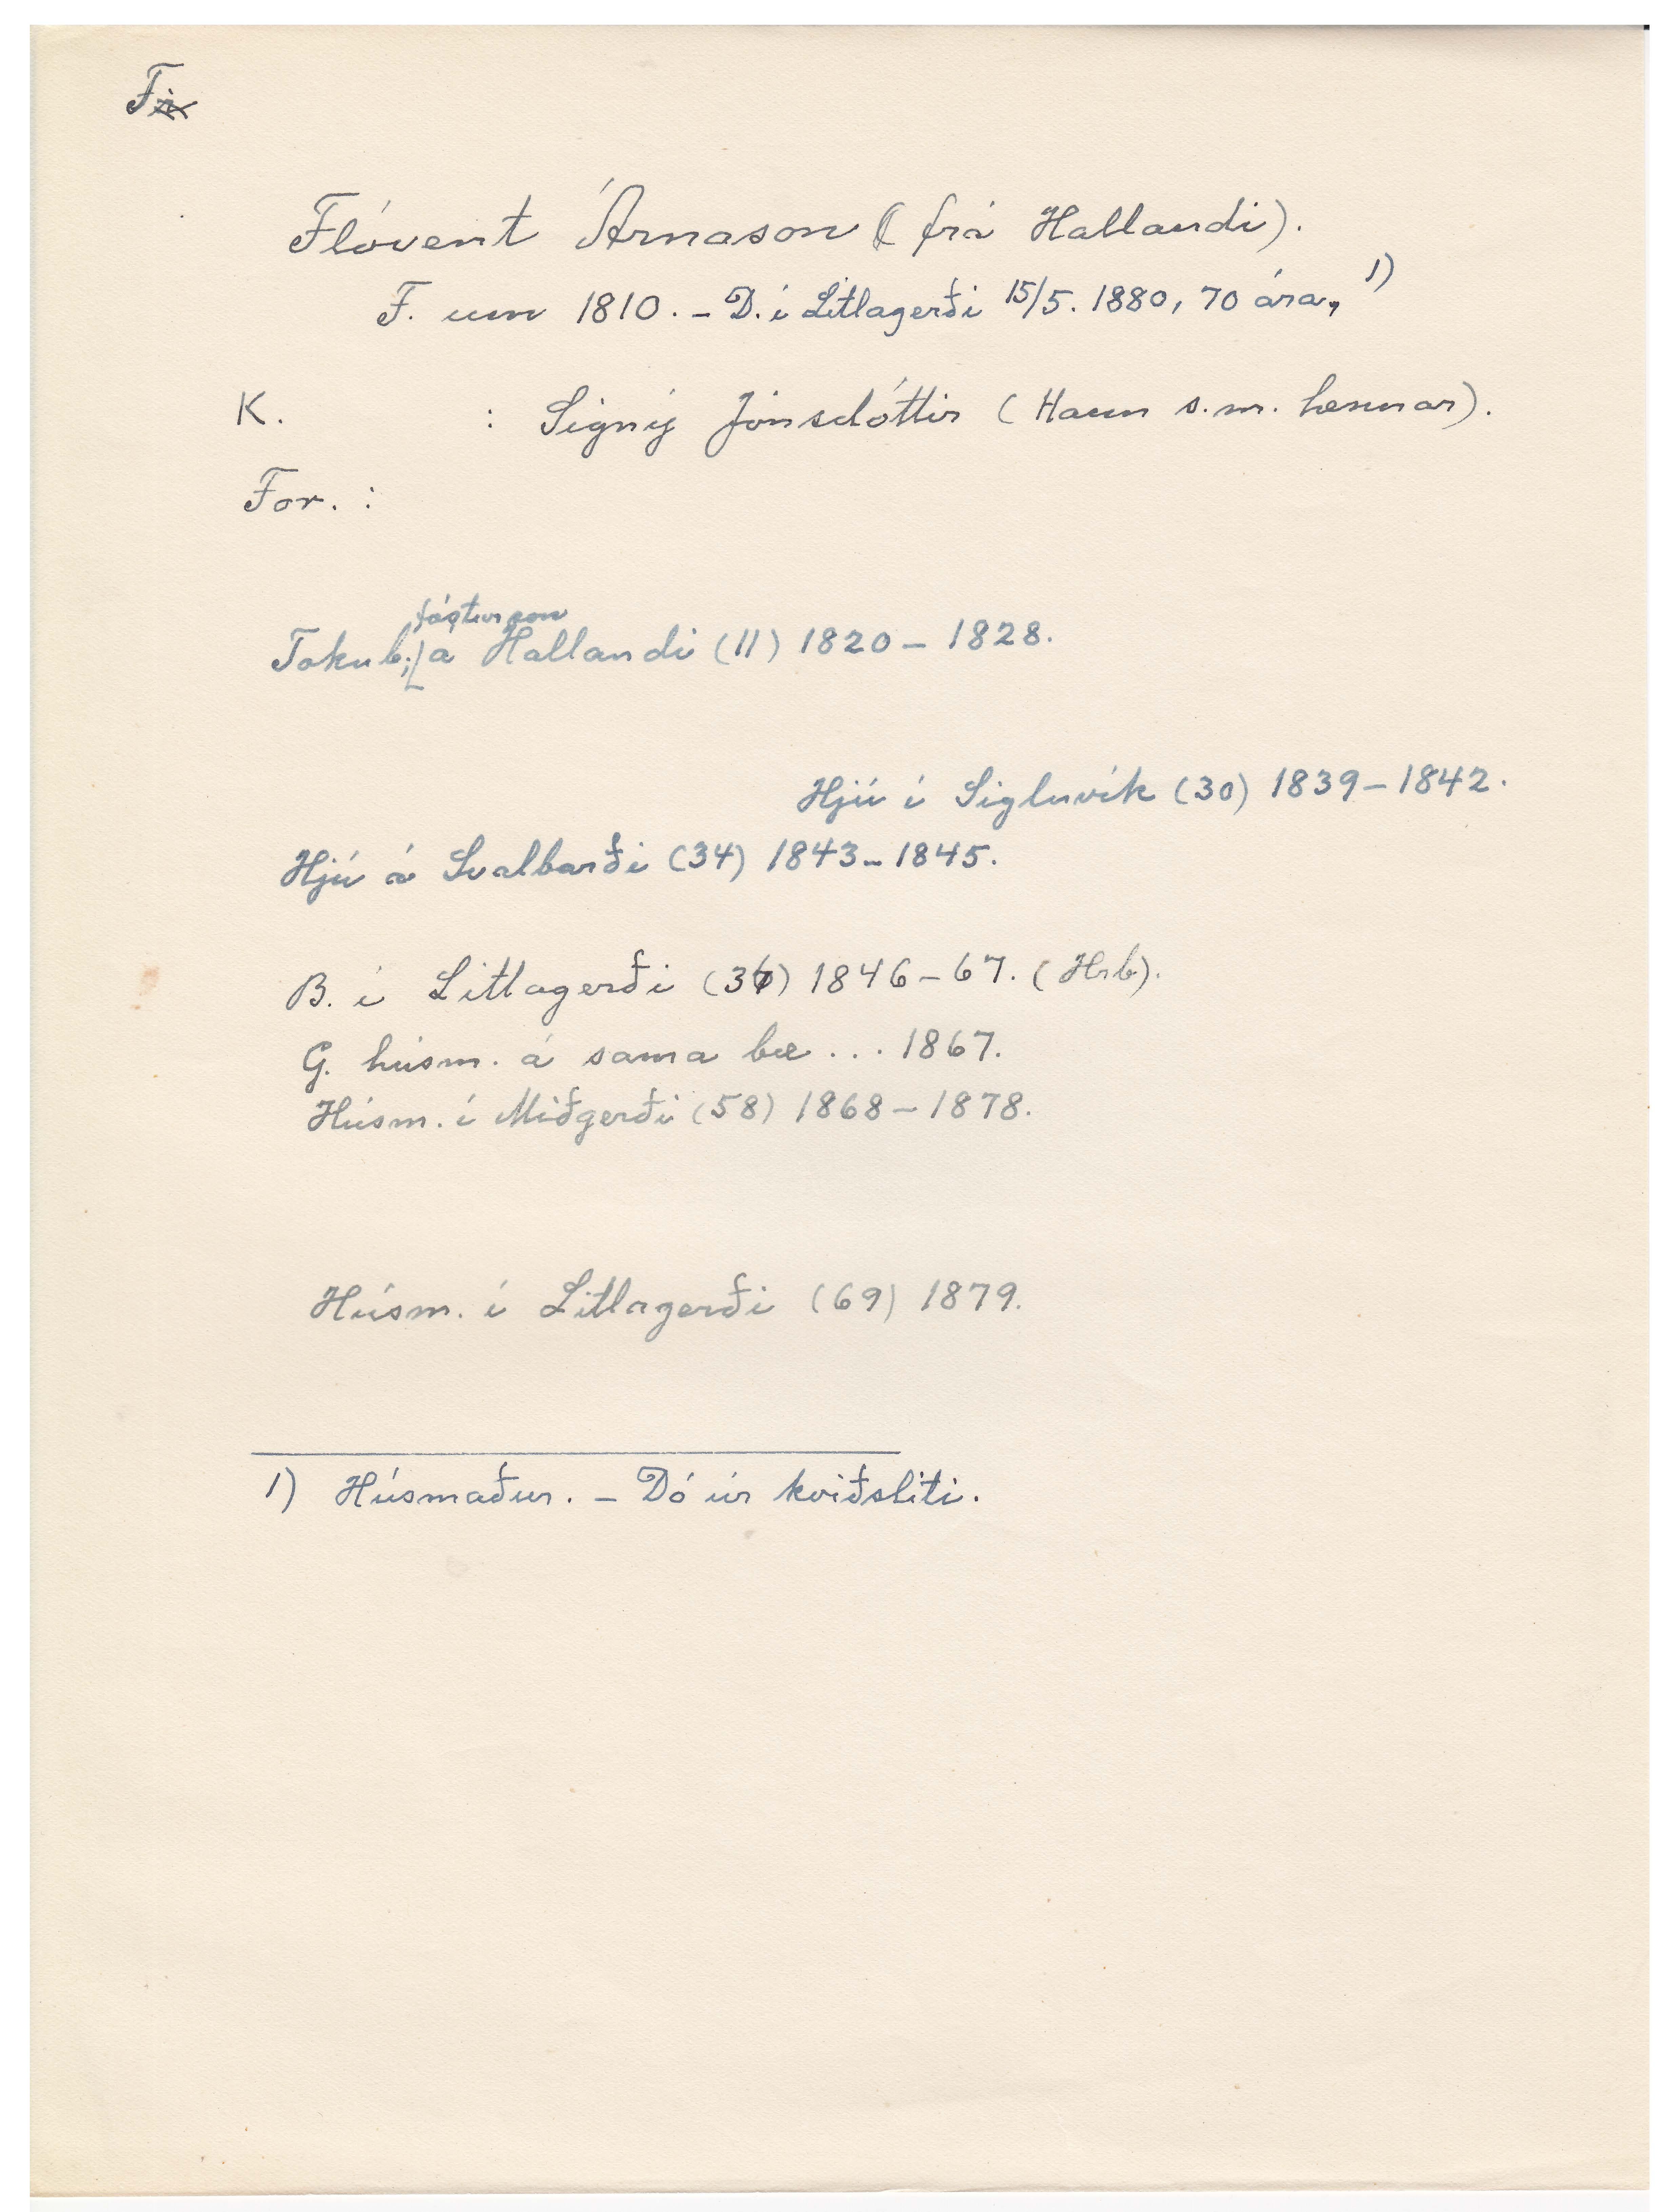 F
Flóvent Árnason (frá Hallandi).
F. um 1810. – D. í Litlagerði 15/5. 1880, 70 ára, 1)
K. : Signý Jónsdóttir (Hann s.m. hennar).
For. :
fósturson
Tökub.; á Hallandi (11) 1820 – 1828.
Hjú í Sigluvík (30) 1839 – 1842.
Hjú á Svalbarði (34) 1843 – 1845.
B. í Litlagerði (36) 1846 – 67. (Hrb).
G. húsm. á sama bæ ... 1867.
Húsm. í Miðgerði (58) 1868 – 1878.
Húsm. í Litlagerði (69) 1879.
1) Húsmaður. – Dó úr kviðsliti.